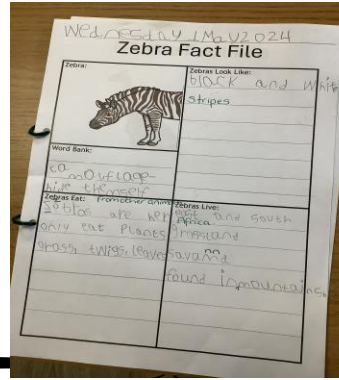 Wednesday 1 May 2024
Zebra Fact File
Zebra:
Zebras Look Like:
black and white
stripes
Word Bank:
camouflage
hide themself
from other animals
Zebras Eat:
Zebras are her
only eat plants
grass, twigs, leaves
Zebras Live:
east and south
Africa
grassland
savannd
found in mountains.